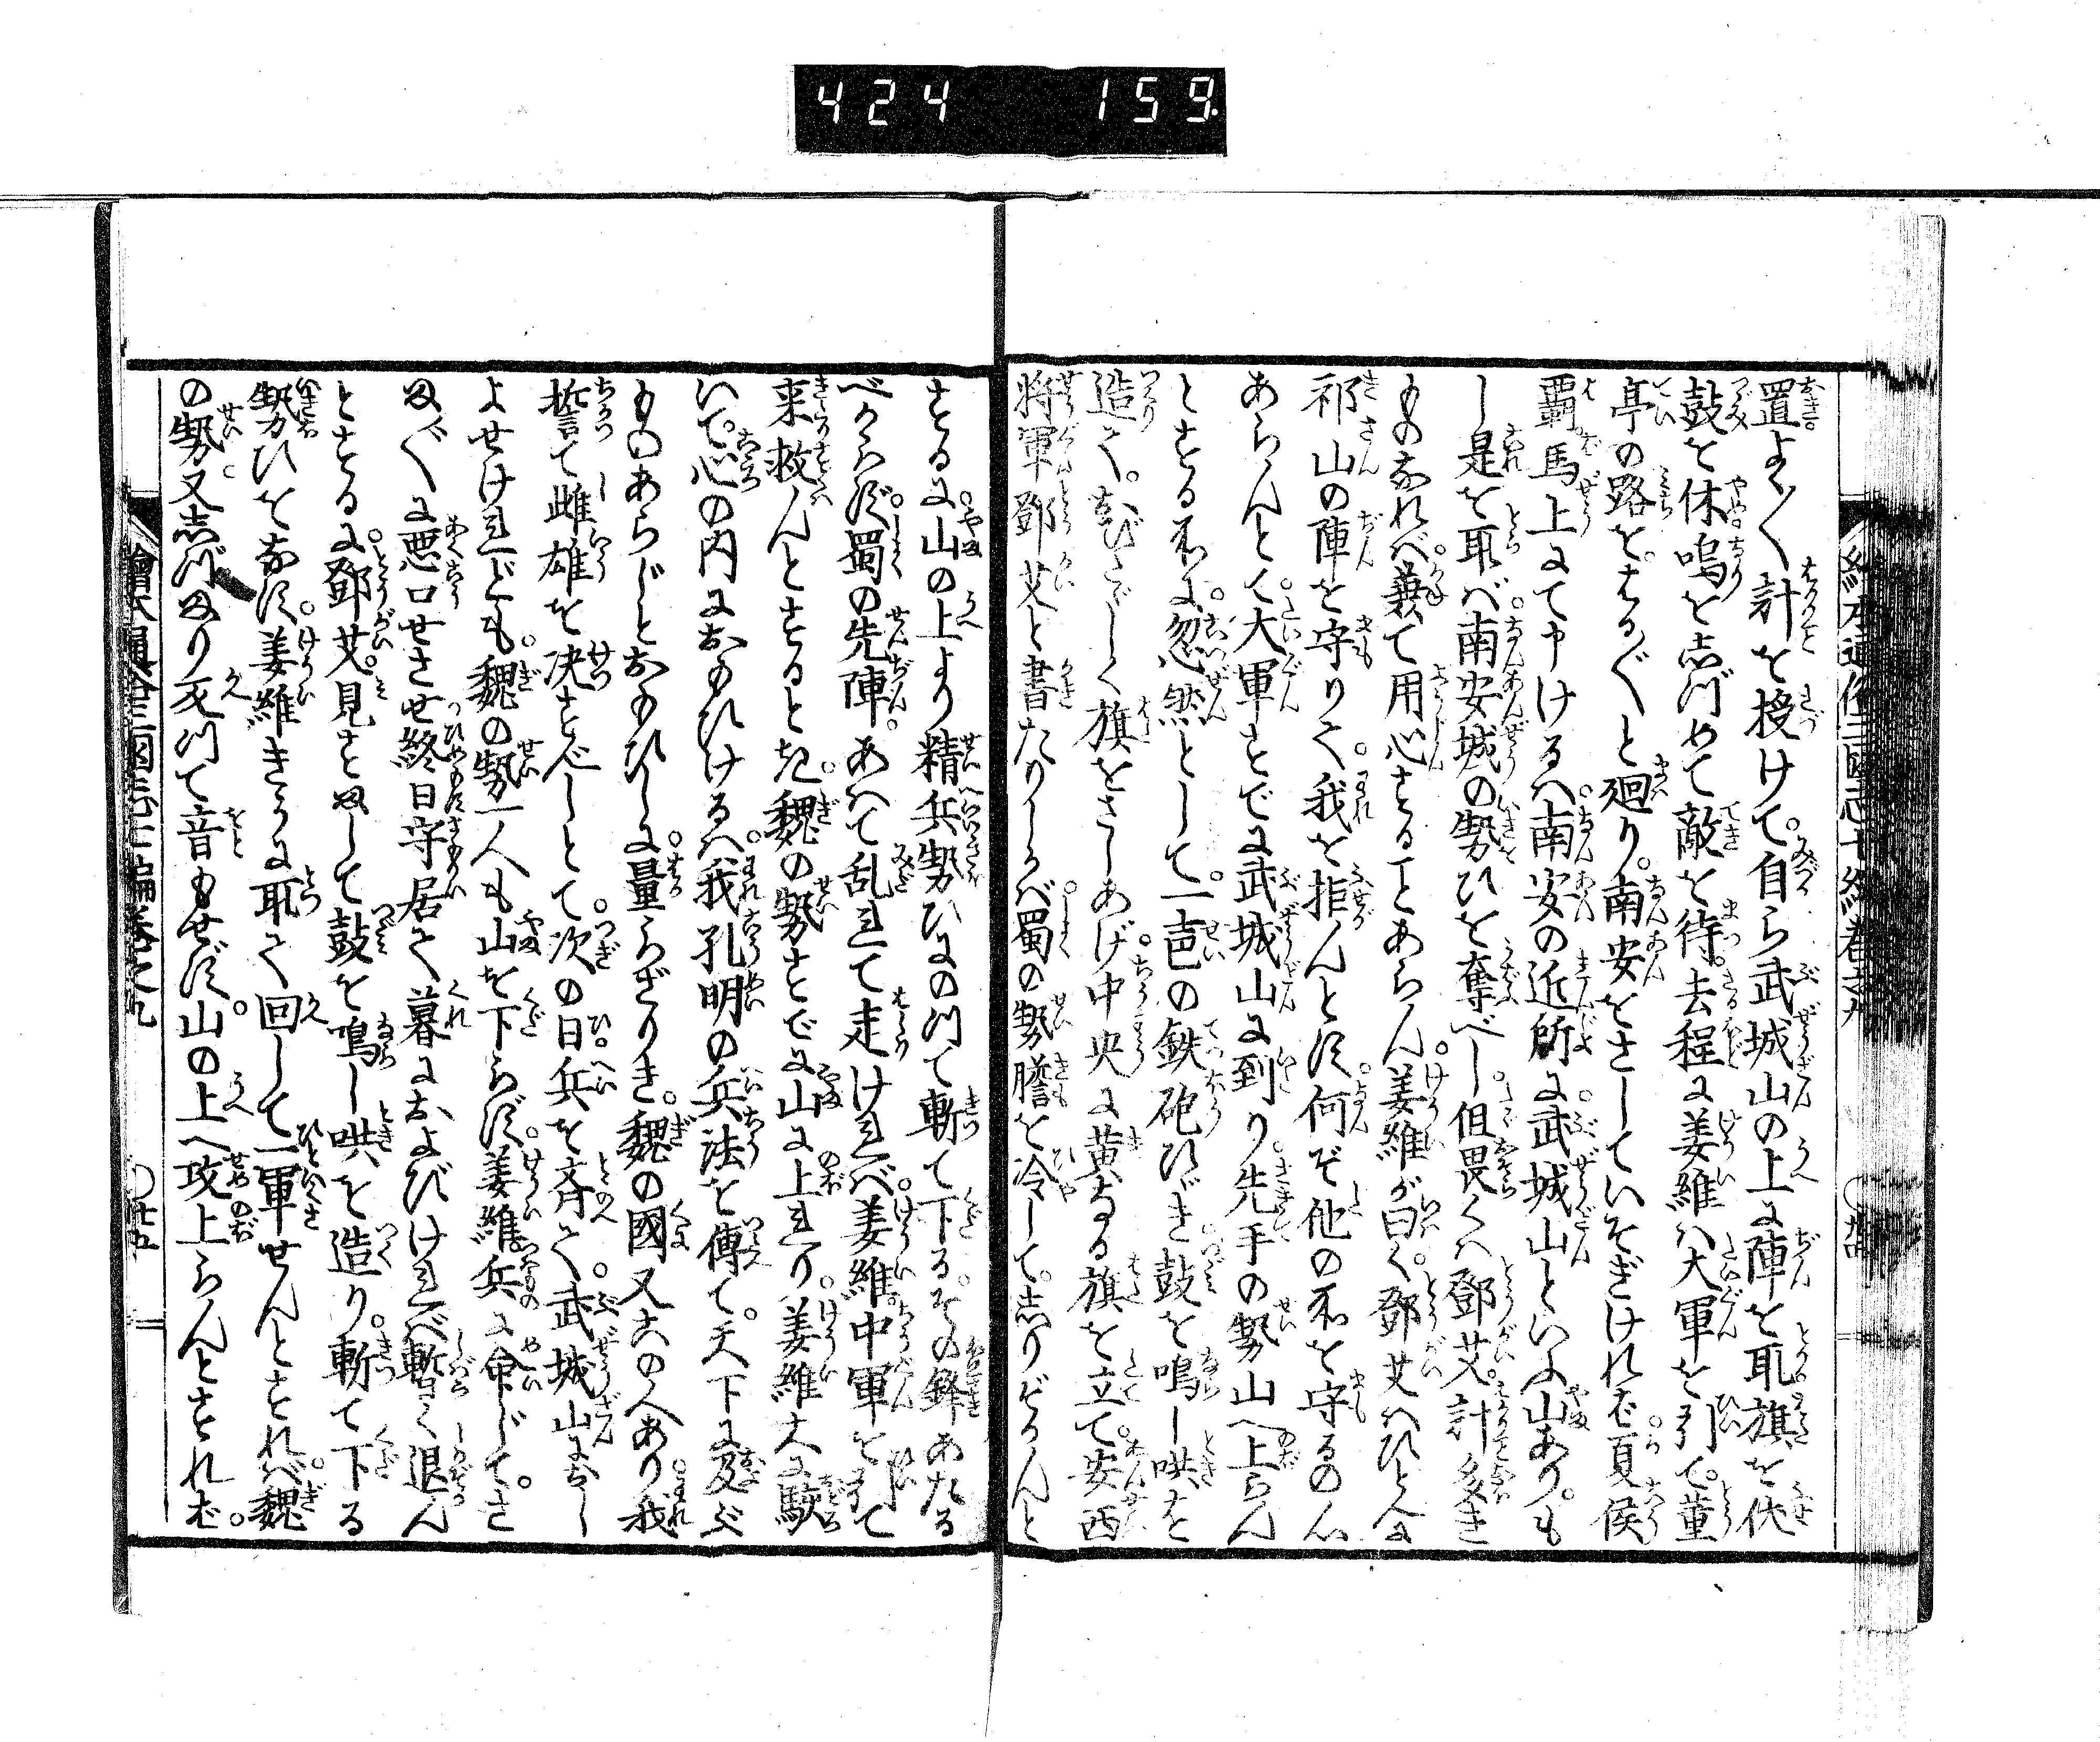 424 159
置よく〳〵計を授けて。自ら武城山の上に陣を取旗を伏
鼓を休鳴を志づめて敵を待。去程に姜維ハ大軍を引て。董
亭の路を。はる〴〵と廻り。南安をさしていそぎけれバ。夏侯
覇馬上にて申けるハ。南安の近所に。武城山といふ山あり。も
し是を取バ。南安城の勢ひを奪べし。但畏くハ鄧艾。計多き
ものなれバ。兼て用心することあらん。姜維が曰く。鄧艾ハひとへに
祁山の陣を守りて。我を拒んとす。何ぞ他の所を守るの心
あらんとて。大軍すでに武城山に到り。先手の勢山へ上らん
とする所に。忽然として。一声の鉄砲ひゞき鼓を鳴し哄を
造て。おびたゞしく旗をさしあげ。中央に黄なる旗を立て。安西
将軍鄧艾と書たりしかバ。蜀の勢膽を冷して。志りぞかんと
するに。山の上より精兵勢ひにのつて斬て下る。その鋒あたる
べからず。蜀の先陣。あへて乱れて走けれバ。姜維。中軍を引て
来救んとするとき。魏の勢すでに山に上れり。姜維大に駭
いて。心の内におもひけるハ。我孔明の兵法を傳て。天下に及ぶ
ものあらじとおもひしに。量らざりき。魏の國又此の人あり。我
誓て雌雄を决すべしとて。次の日。兵を斉て。武城山におし
よせけれども。魏の勢一人も山を下らず。姜維。兵に命じて。さ
ま〴〵に悪口せさせ終日守居て暮におよびけれバ暫く退ん
とするに。鄧艾。見すまして鼓を鳴し哄を造り。斬て下る
勢ひをなす。姜維きうに取て回して一軍せんとすれバ。魏
の勢。又志づまり死つて音もせず。山の上へ攻上らんとすれバ。